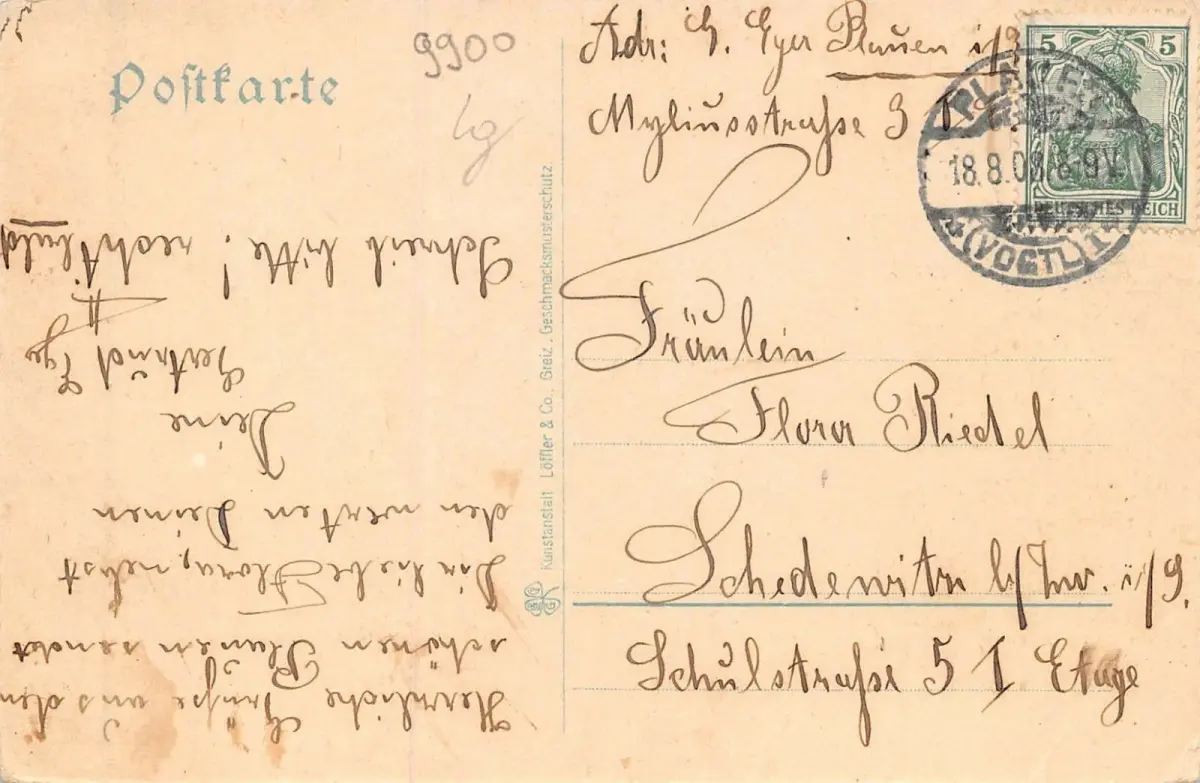 Postkarte
9900
Adr: G. Eger Plauen i/S
Myliusstraße 3 I
5 5
DEUTSCHES REICH
PLAUEN
18.8.08.8-9V.
(VOGTL) 1
Fräulein
Flora Riedel
Schedewitz b/Zw. i/S.
Schulstraße 5 I Etage
Kunstanstalt Löffler & Co., Greiz. Geschmacksmusterschutz.
Herrliche Grüße aus dem
schönen Plauen sendet
Dir liebe Flora, nebst
den werten Deinen
Deine
Gertrud Eger
Schreib bitte! recht bald